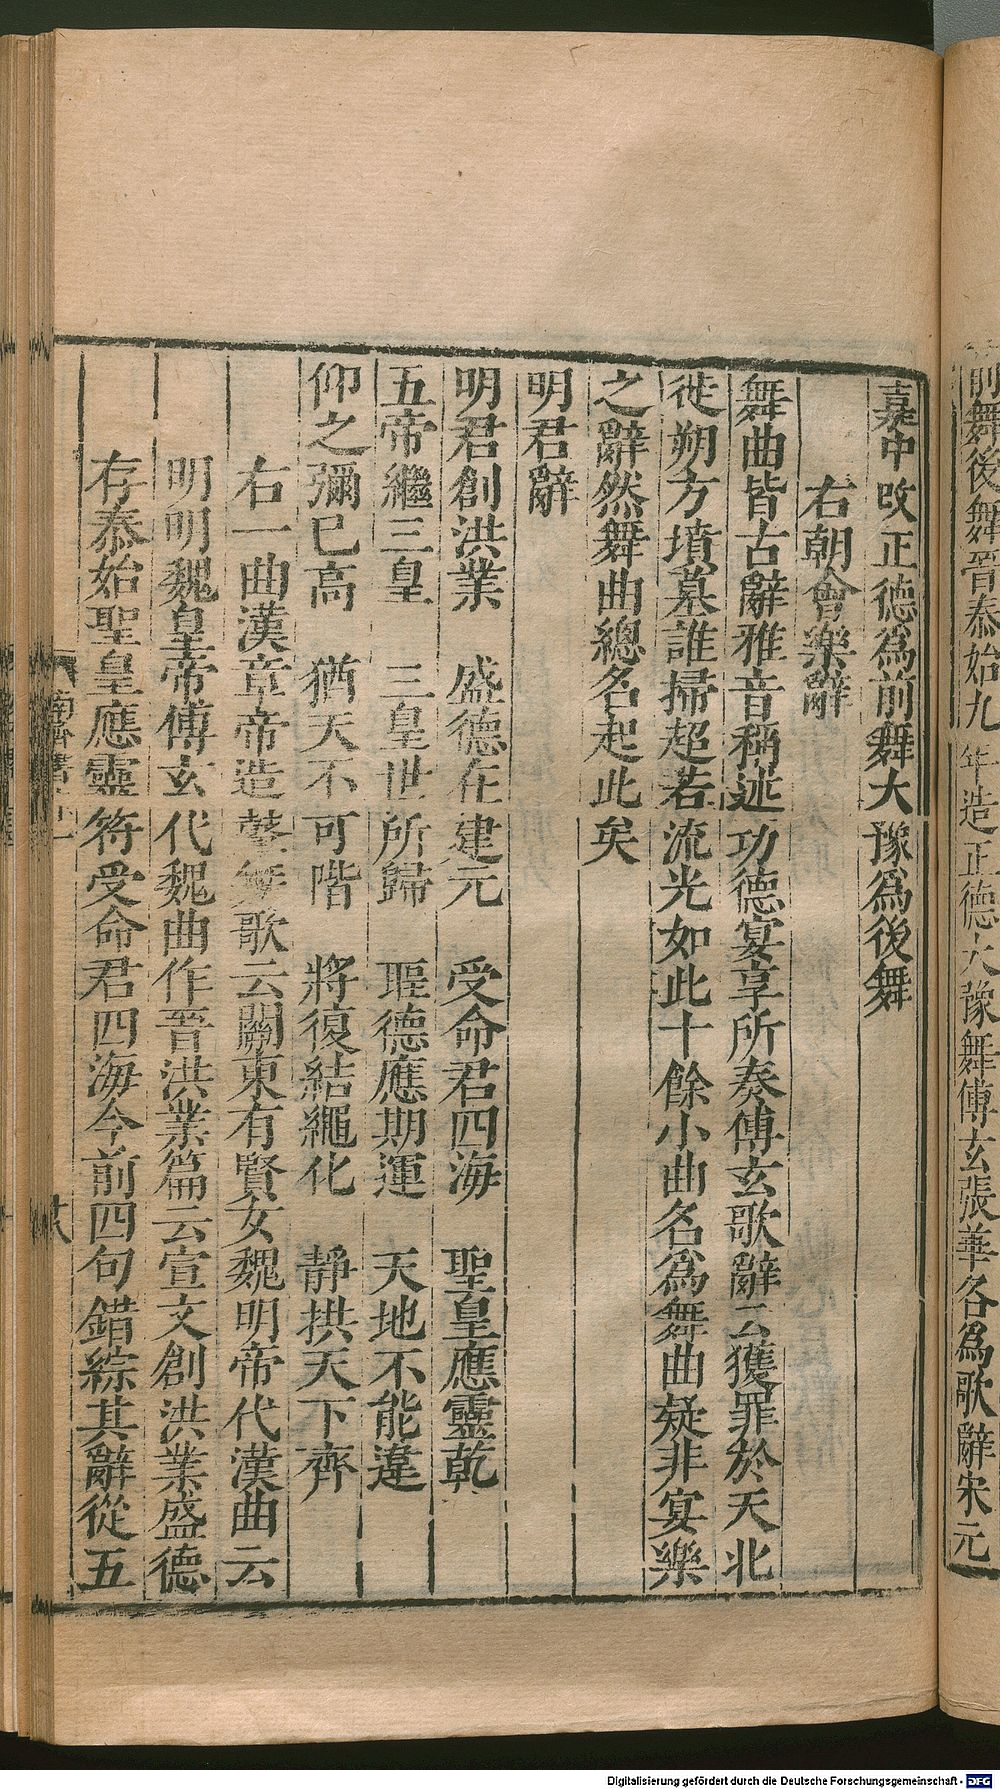 前舞後舞晉泰始九年造正德大豫舞傅玄張華各爲歌辭宋元
嘉中改正德爲前舞大豫爲後舞
右朝會樂辭
舞曲皆古辭雅音稱述功德宴享所奏傅玄歌辭云獲罪於天北
徙朔方墳墓誰掃超若流光如此十餘小曲名爲舞曲疑非宴樂
之辭然舞曲總名起此矣
明君辭
明君創洪業 盛德在建元 受命君四海 聖皇應靈乾
五帝繼三皇 三皇世所歸 聖德應期運 天地不能違
仰之彌已高 猶天不可階 將復結繩化 靜拱天下齊
右一曲漢章帝造鼙舞歌云關東有賢女魏明帝代漢曲云
明明魏皇帝傅玄代魏曲作晉洪業篇云宣文創洪業盛德
存泰始聖皇應靈符受命君四海今前四句錯綜其辭從五
南齊書十一
廿八
Digitalisierung gefördert durch die Deutsche Forschungsgemeinschaft - DFG